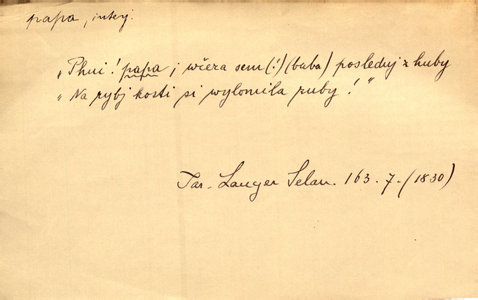 papa, interj.
„Phui! papa, j wčera sem (!) (baba) poslednj z huby
„Na rybj kosti si wylomila zuby!"
Jar. Langer Selan. 163. 7. (1830)